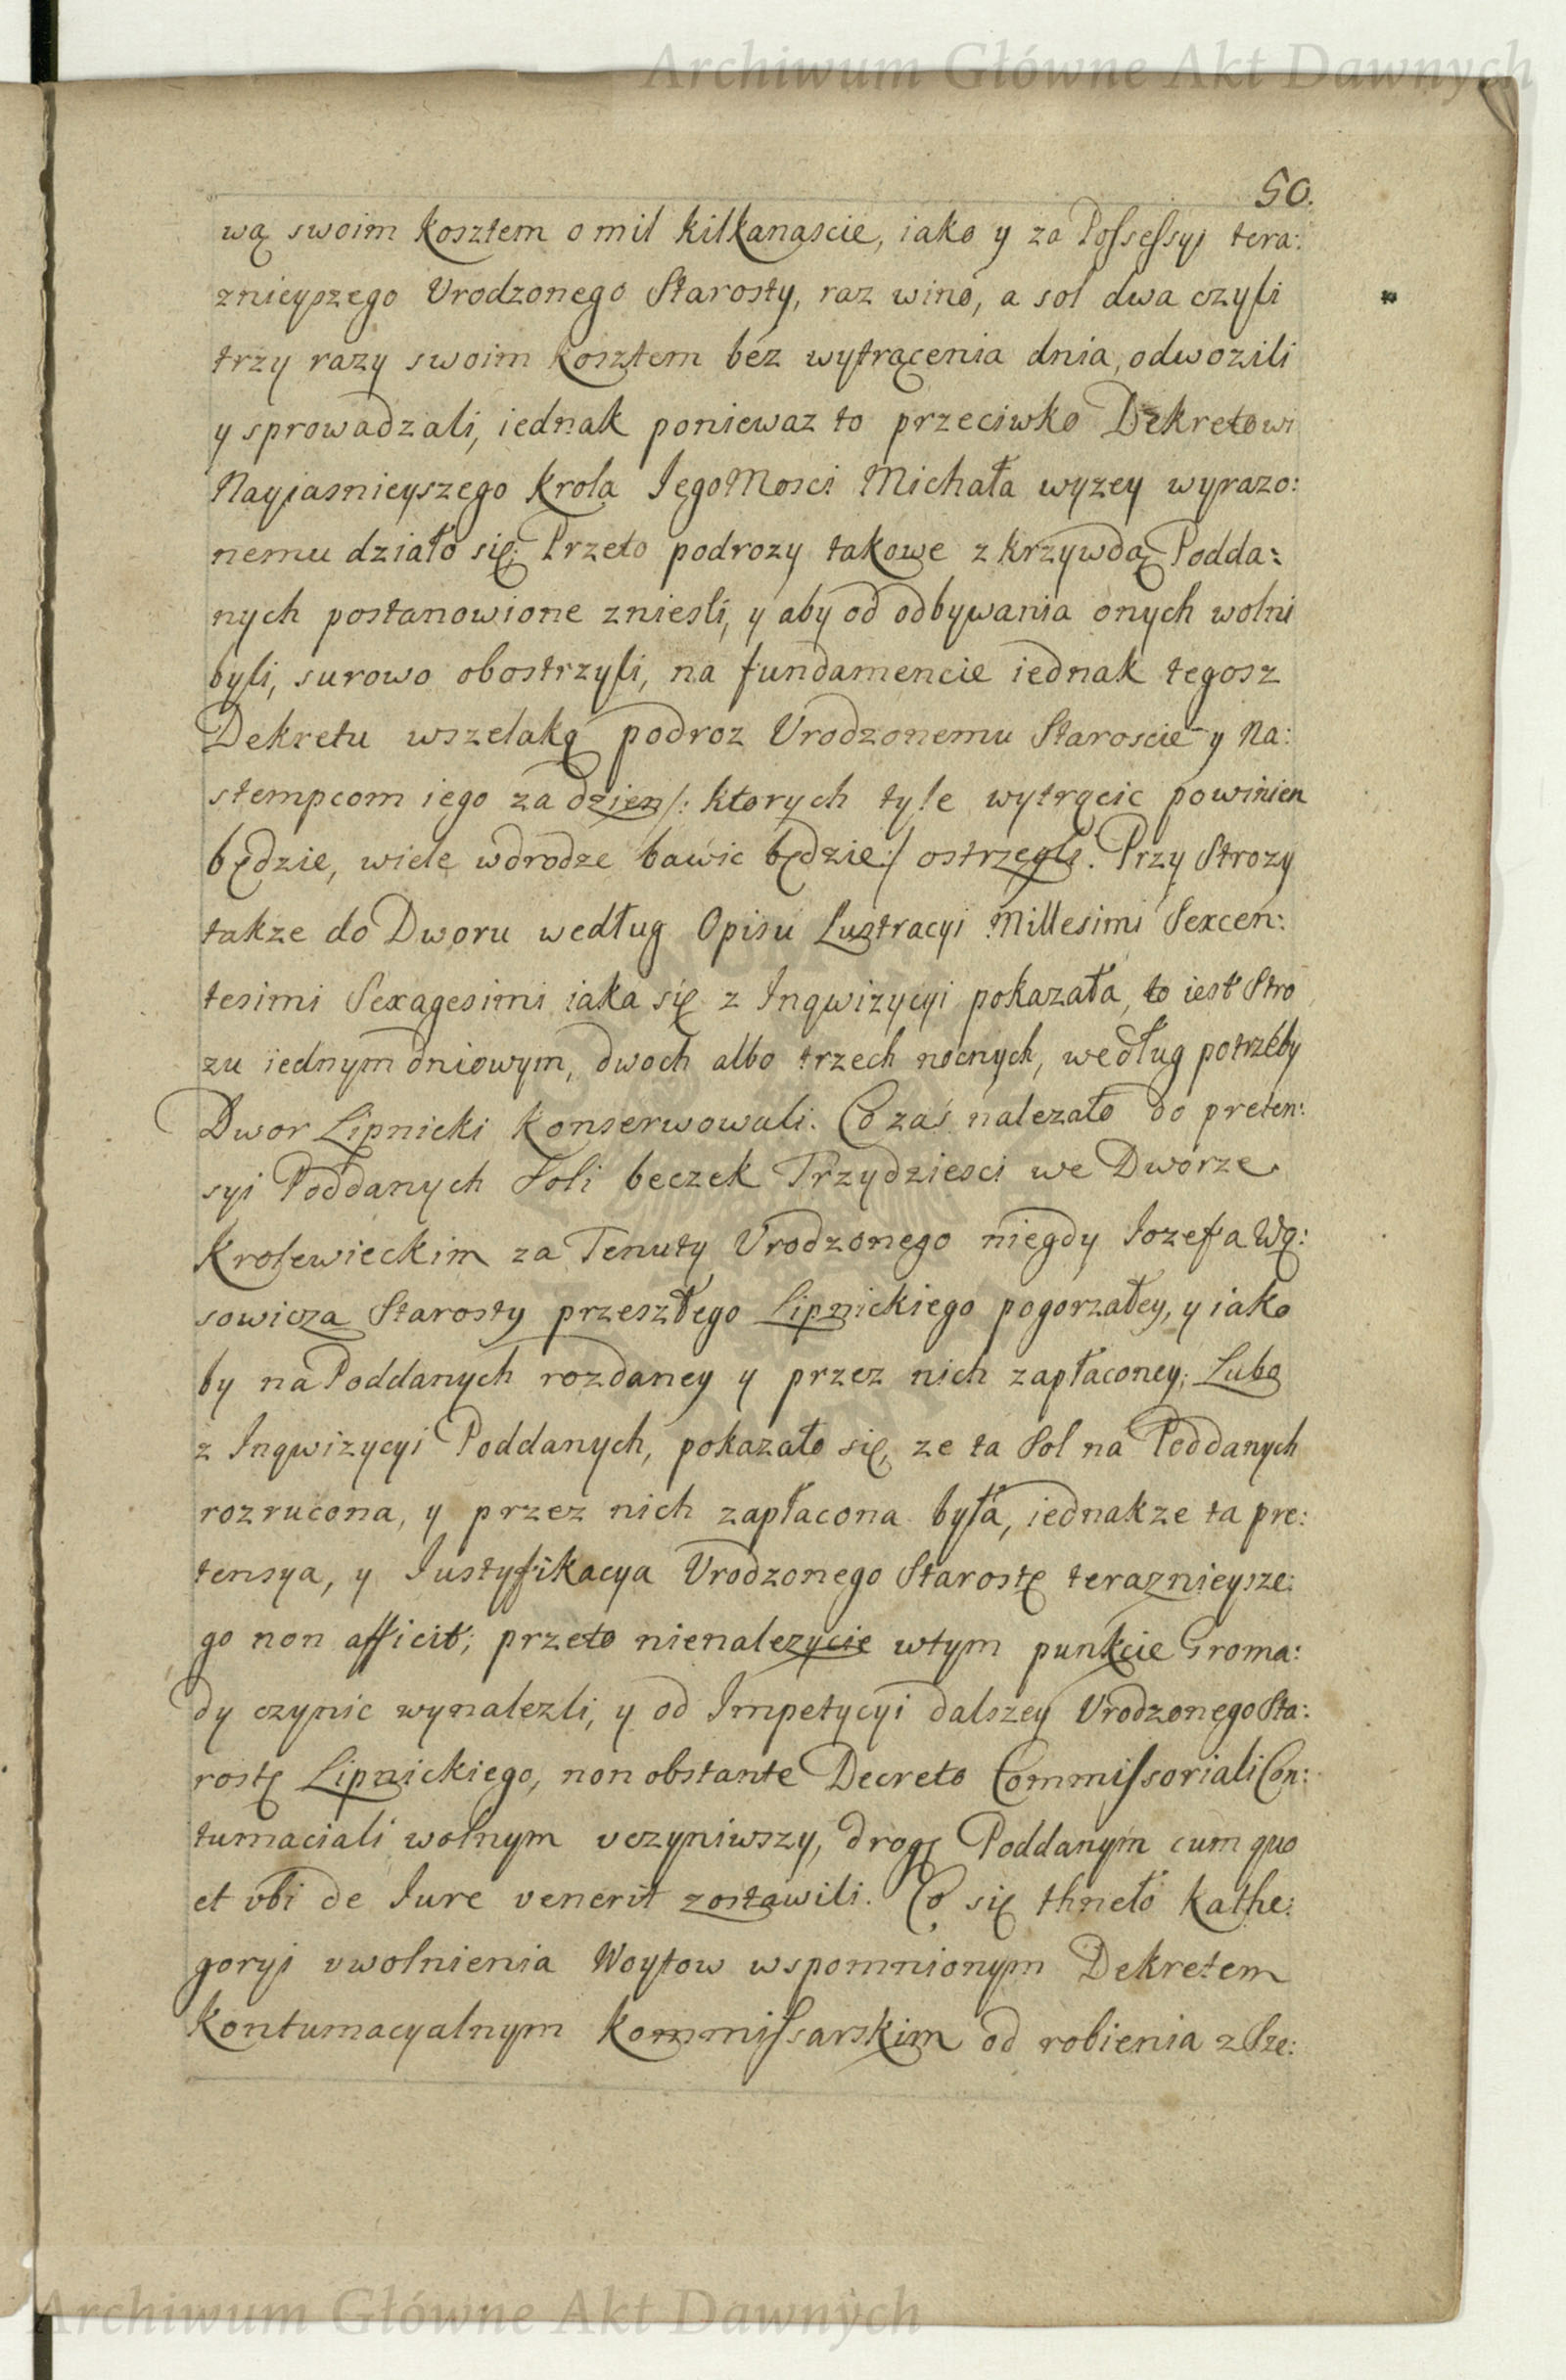 Archiwum Główne Akt Dawnych
50.
wą swoim kosztem o mil kilkanascie, iako y za Possessyi tera:
znieyszego Urodzonego Starosty, raz wino, a sol dwa czyli
trzy razy swoim kosztem bez wytrącenia dnia, odwozili
y sprowadzali, iednak poniewaz to przeciwko Dekretowi
Nayiasnieyszego Krola JegoMosci Michała wyzey wyrazo:
nemu działo się; Przeto podrozy takowe z krzywdą Podda:
nych postanowione zniesli, y aby od odbywania onych wolni
byli, surowo obostrzyli, na fundamencie iednak tegosz
Dekretu wszelaką podroz Urodzonemu Staroscie y Na:
stempcom iego za dzien /: ktorych tyle wytrącic powinien
będzie, wiele wdrodze bawic będzie :/ ostrzegli. Przy Strozy
takze do Dworu według Opisu Lustracyi Millesimi Sexcen:
tesimi Sexagesimi iaka się z Inqwizycyi pokazała, to iest Stro
zu iednym dniowym, dwoch albo trzech nocnych, według potrzeby
Dwor Lipnicki konserwowali. Co zaś nalezało do preten:
syi Poddanych Soli beczek Trzydziesci we Dworze
Krolewieckim za Tenuty Urodzonego niegdy Iozefa Wą:
sowicza Starosty przeszłego Lipnickiego pogorzałey, y iako
by na Poddanych rozdaney y przez nich zapłaconey; Lubo
z Inqwizycyi Poddanych, pokazało się, ze ta Sol na Poddanych
rozrucona, y przez nich zapłacona była, iednakze ta pre:
tensya, y Iustyfikacya Urodzonego Starostę teraznieysze:
go non afficit; przeto nienalezycie wtym punkcie Groma:
dy czynic wynalezli, y od Impetycyi dalszey Urodzonego Sta:
rostę Lipnickiego, non obstante Decreto Commissoriali Con:
tumaciali wolnym uczyniwszy, drogę Poddanym cum quo
et ubi de Iure venerit zostawili. Co się thneło kathe:
goryi uwolnienia Woytow wspomnionym Dekretem
Kontumacyalnym Kommissarskim od robienia z Sze:
Archiwum Główne Akt Dawnych